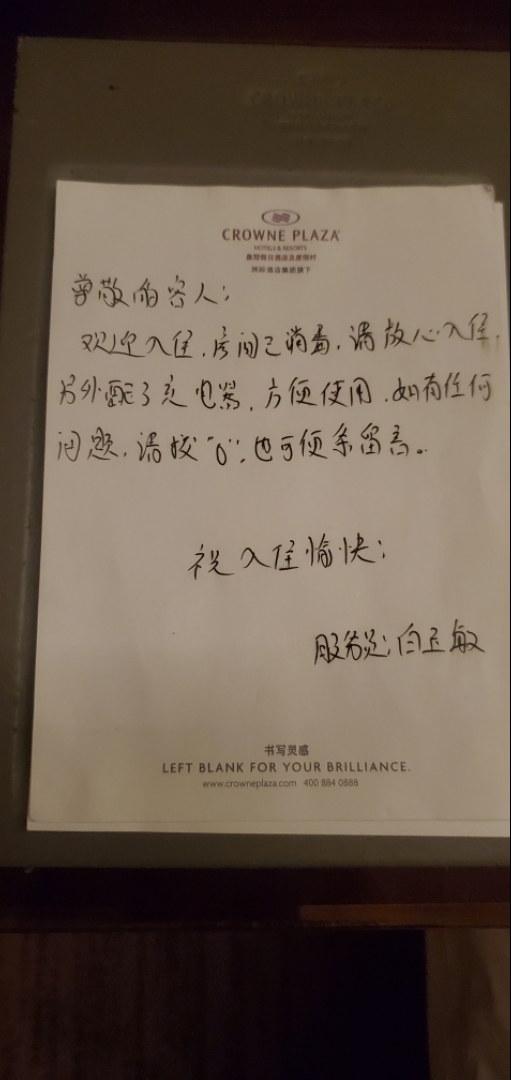 CROWNE PLAZA
HOTELS & RESORTS
皇冠假日酒店及度假村
洲际酒店集团旗下
尊敬的客人:
欢迎入住,房间已消毒,请放心入住,
另外配了充电器,方便使用,如有任何
问题,请拨"0",也可便条留言。
祝入住愉快!
服务员:白玉敏
书写灵感
LEFT BLANK FOR YOUR BRILLIANCE.
www.crowneplaza.com 400 884 0888